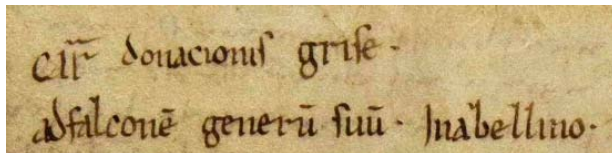 Carͬ donacionis grise·
adfalconē generū suū· Inabellino·